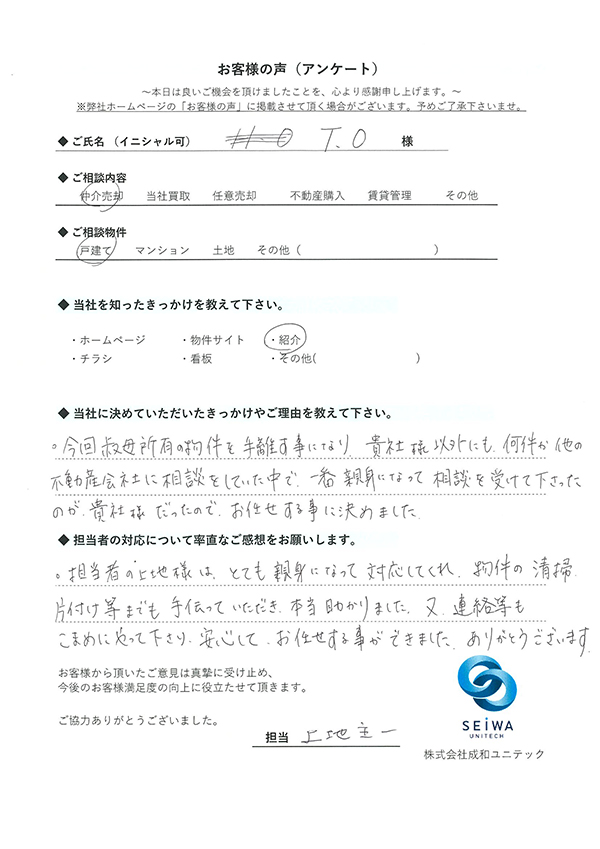 お客様の声（アンケート）
～本日は良いご機会を頂けましたことを、心より感謝申し上げます。～
※弊社ホームページの「お客様の声」に掲載させて頂く場合がございます。予めご了承下さいませ。
◆ ご氏名（イニシャル可） H.O T.O 様
◆ ご相談内容
仲介売却 当社買取 任意売却 不動産購入 賃貸管理 その他
◆ ご相談物件
戸建て マンション 土地 その他（ ）
◆ 当社を知ったきっかけを教えて下さい。
・ホームページ ・物件サイト ・紹介
・チラシ ・看板 ・その他( )
◆ 当社に決めていただいたきっかけやご理由を教えて下さい。
○今回叔母所有の物件を手離す事になり、貴社様以外にも、何件か他の
不動産会社に相談をしていた中で、一番親身になって相談を受けて下さった
のが、貴社様だったので、お任せする事に決めました。
◆ 担当者の対応について率直なご感想をお願いします。
○担当者の上地様は、とても親身になって対応してくれ、物件の清掃、
片付け等までも手伝っていただき、本当助かりました。又、連絡等も
こまめにやって下さり、安心して、お任せする事ができました。ありがとうございます。
お客様から頂いたご意見は真摯に受け止め、
今後のお客様満足度の向上に役立たせて頂きます。
ご協力ありがとうございました。
担当 上地圭一
SEIWA
UNITECH
株式会社成和ユニテック